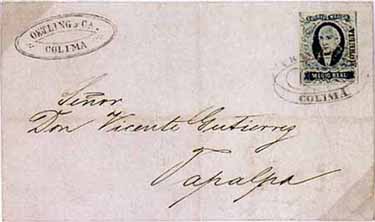 OETLING Y CA.
COLIMA
MORELIA
MEDIO REAL
COLIMA
Señor
Don Vicente Gutierrez
Tapalpa